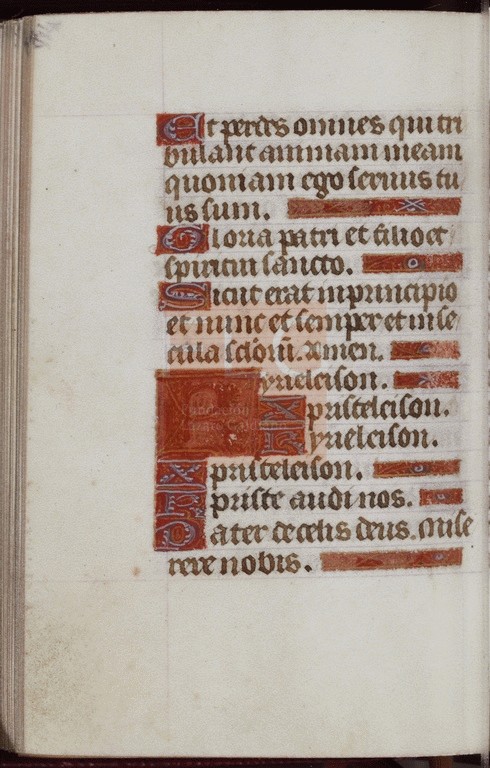 Et perdes omnes qui tri
bulant animam meam
quoniam ego servus tu
us sum.
Gloria patri et filio et
spiritui sancto.
Sicut erat in principio
et nunc et semper et in se
cula sc̄lorū. Amen.
Kyrieleison.
Xpristeleison.
Kyrieleison.
Xpristeleison.
Xpriste audi nos.
Pater de celis deus. mise
rere nobis.
Fundación
Lázaro Galdiano